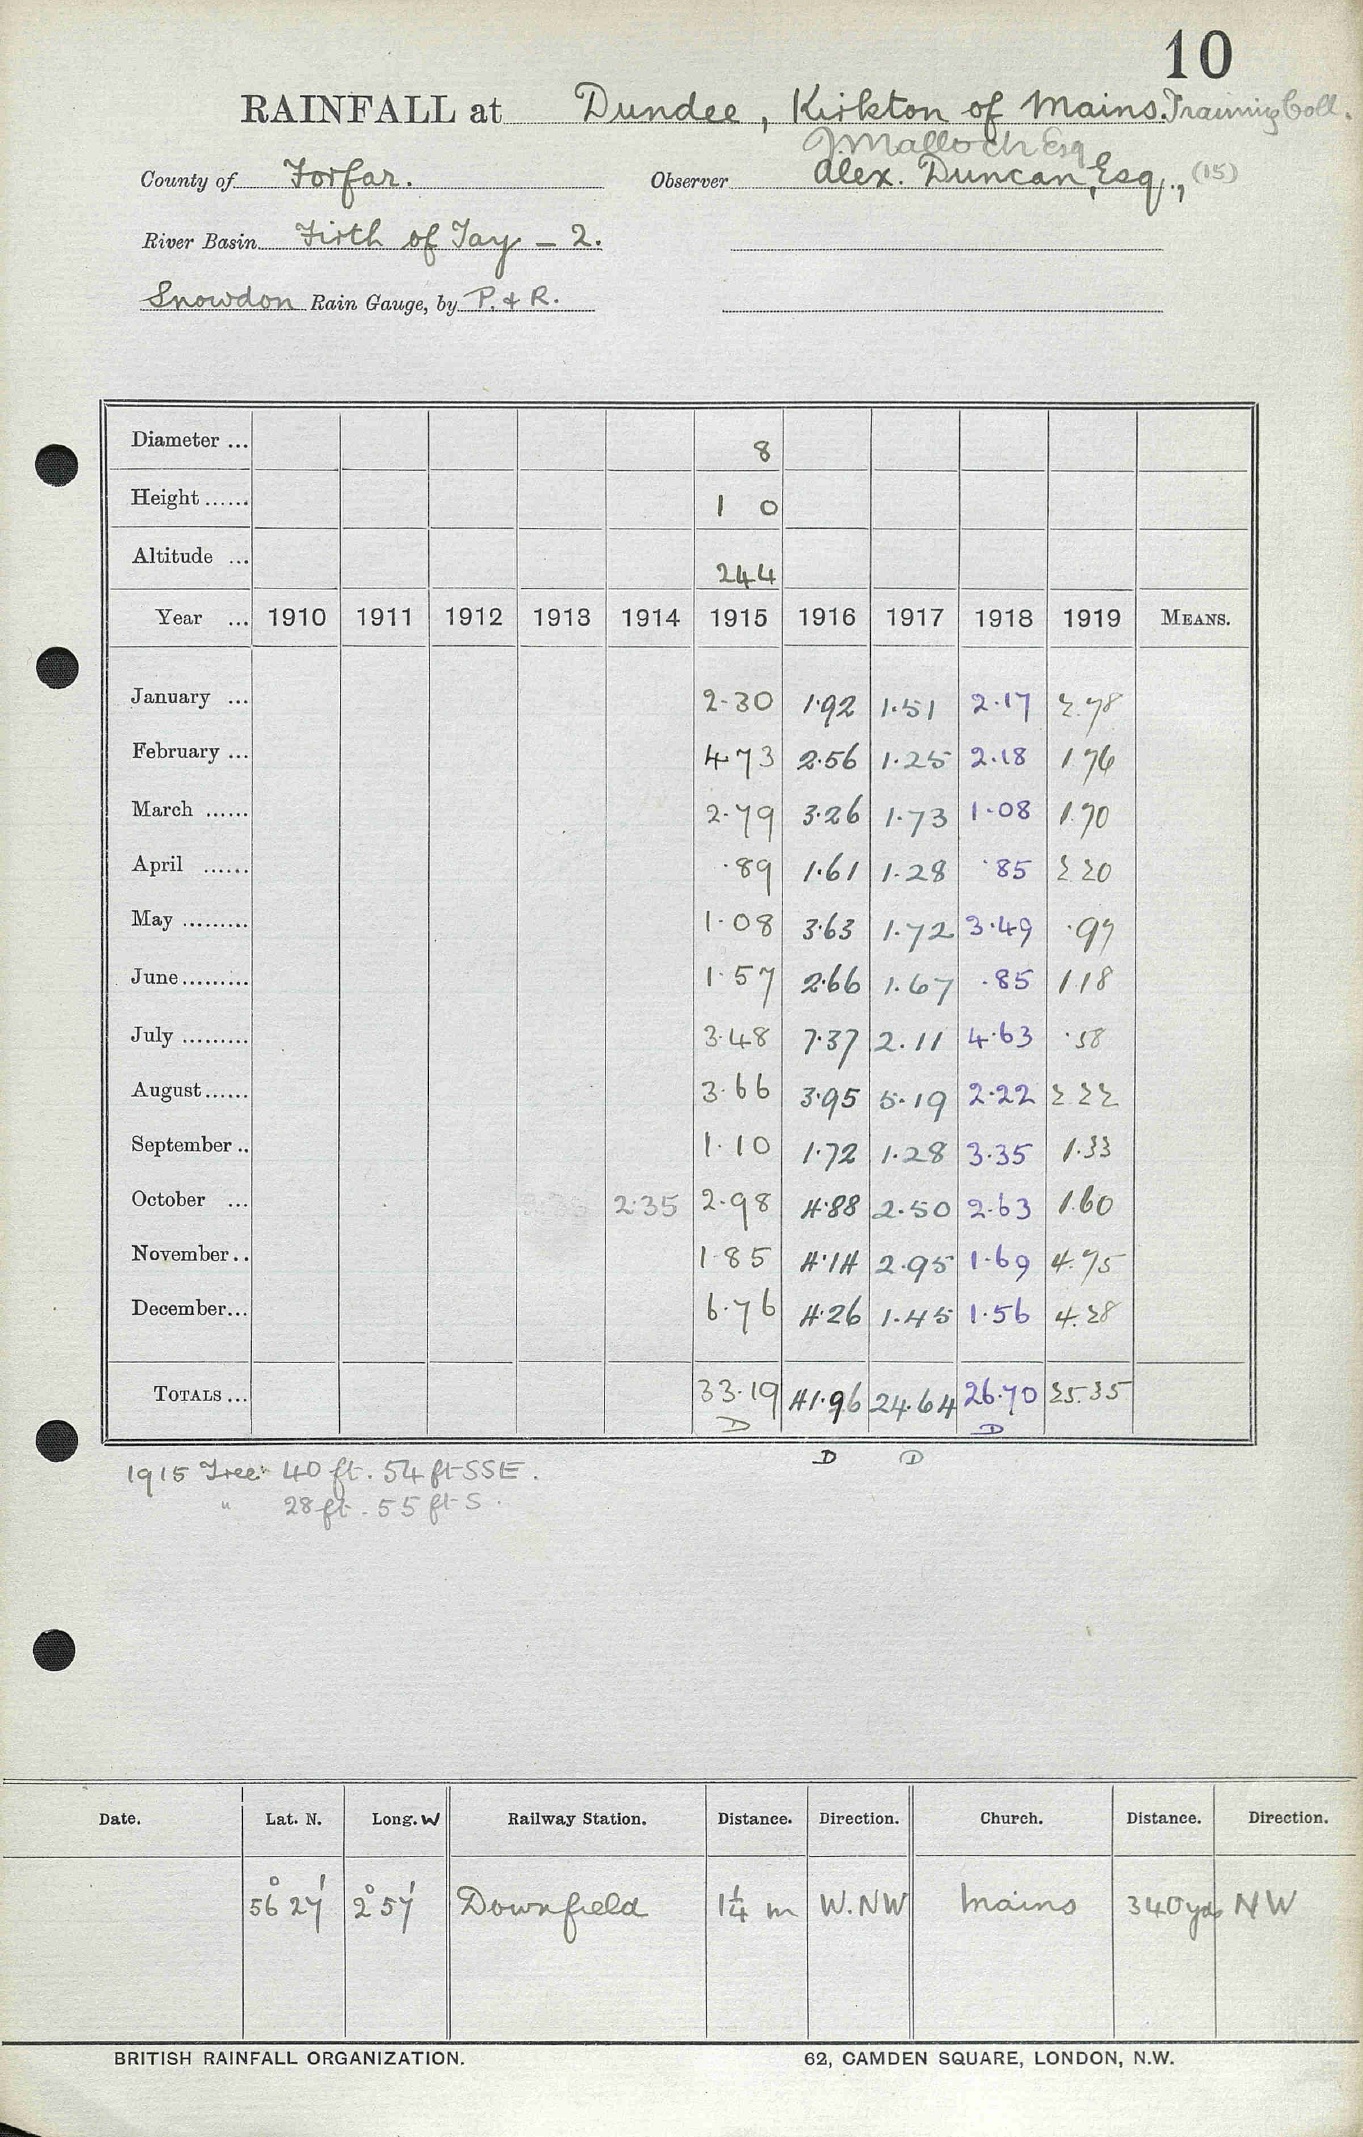 10
RAINFALL at Dundee, Kirkton of Mains. Training Coll.
J. Malloch Esq
County of Forfar. Observer Alex. Duncan, Esq., (15)
River Basin Firth of Tay — 2.
Snowdon Rain Gauge, by P. & R.
Diameter ... 8
Height ...... 1 0
Altitude ... 244
Year ... 1910 1911 1912 1913 1914 1915 1916 1917 1918 1919 MEANS.
January ... 2.30 1.92 1.51 2.17 2.78
February ... 4.73 2.56 1.25 2.18 1.76
March ...... 2.79 3.26 1.73 1.08 1.70
April ...... .89 1.61 1.28 .85 2.20
May ......... 1.08 3.63 1.72 3.49 .97
June ......... 1.57 2.66 1.67 .85 1.18
July ......... 3.48 7.37 2.11 4.63 .58
August ...... 3.66 3.95 5.19 2.22 2.22
September .. 1.10 1.72 1.28 3.35 1.33
October ... 2.35 2.98 4.88 2.50 2.63 1.60
November .. 1.85 4.14 2.95 1.69 4.75
December ... 6.76 4.26 1.45 1.56 4.28
TOTALS ... 33.19 41.96 24.64 26.70 25.35
D D D D
1915 Tree 40 ft. 54 ft SSE.
" 28 ft. 55 ft S.
Date. Lat. N. Long. W Railway Station. Distance. Direction. Church. Distance. Direction.
56° 27' 2° 57' Downfield 1¼ m W.NW Mains 340 yds NW
BRITISH RAINFALL ORGANIZATION. 62, CAMDEN SQUARE, LONDON, N.W.